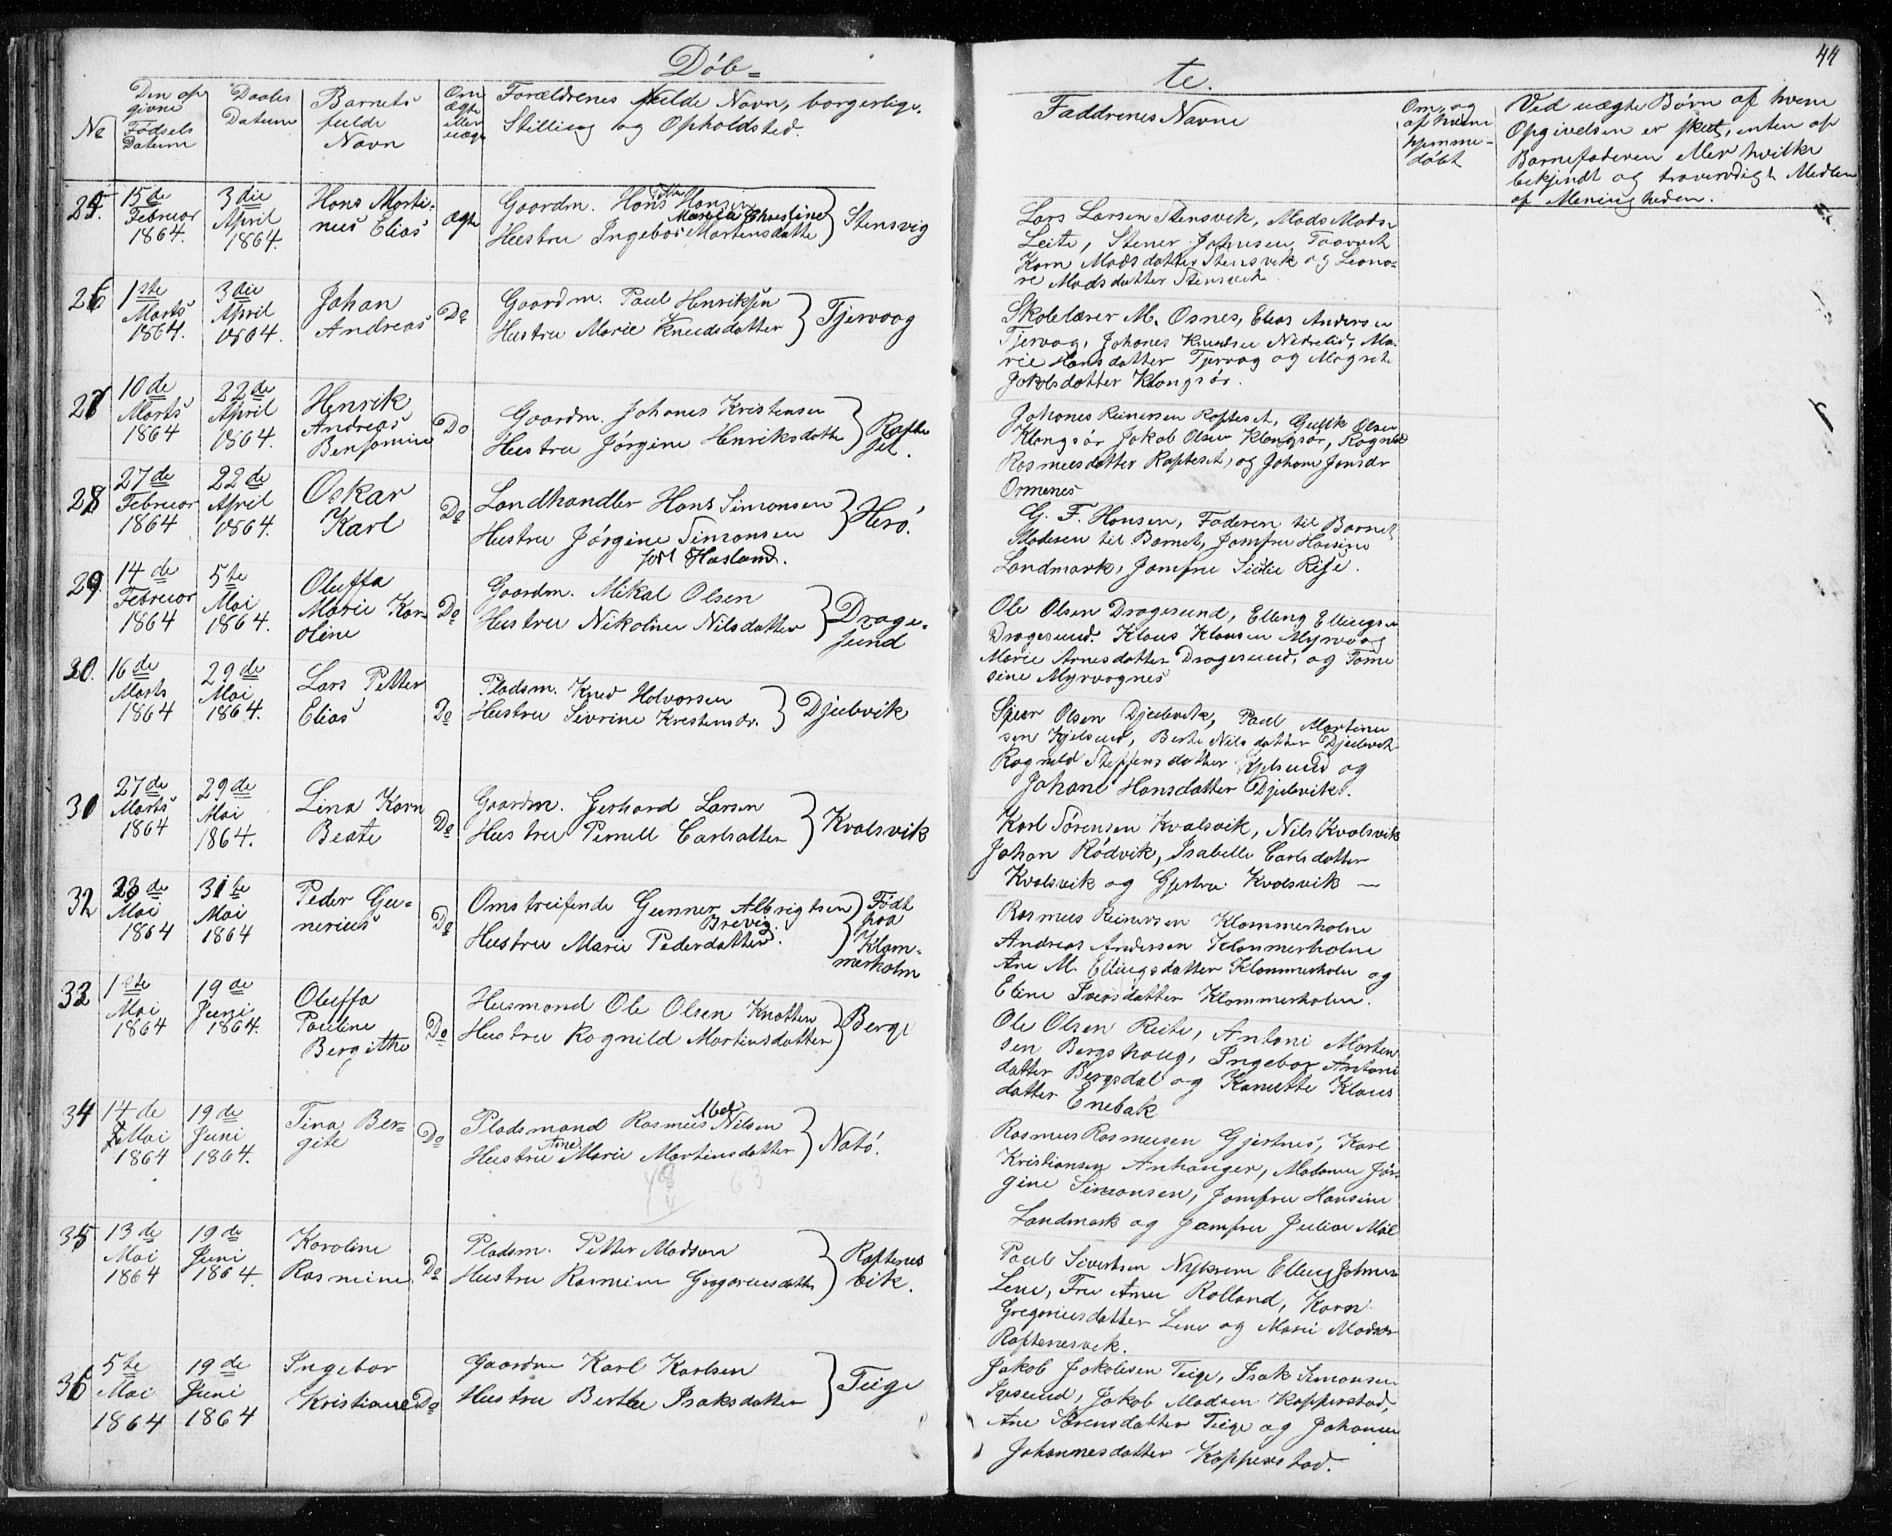 Døb=
te.
44
No
Den op
givne
Fødsels
Datum
Daabs
Datum
Barnets
fulde
Navn
Om
ægte
eller
uægte
Forældrenes fulde Navn, borgerlige
Stilling og Opholdsted.
Faddrenes Navne
Om og
af hvem
hjemme-
døbt
Ved uægte Børn af hvem
Opgivelsen er skeet, enten af
Barnefaderen eller hvilke
bekjendt og troværdigt Medlem
af Menigheden.
25.
15de
Februar
1864.
3die
April
1864.
Hans Marti-
nus Elias
ægte
Gaardm. Hans Hansen
Maria Christine
Hustru Ingebor Martensdatte
Stensvig
Lars Larsen Stensvik, Mads Mads
Leite, Stener Johnsen Taarvik
Karn Madsdatter Stensvik og Leono-
re Madsdatter Stensvik
26
1ste
Marts
1864.
3die
April
1864.
Johan
Andreas
Do
Gaardm. Paul Henriksen
Hustru Marie Knudsdatter
Tjervaag
Skolelærer M. Osnes, Elias Andersen
Tjervag, Johanes Knudsen Nedrelid, Ma-
rie Hansdatter Tjervag og Magrete
Jakobsdatter Klongsør.
27
10de
Marts
1864
22de
April
1864.
Henrik
Andreas
Benjamin
Do
Gaardm. Johanes Kristensen
Hustru Jørgine Henriksdatte
Rafte
set.
Johanes Reinersen Rafteset, Gullik Olsen
Klongsør Jakob Olsen Klongsør, Ragnild
Rasmusdatter Rafteset, og Johane Jonsdr
Ormenes
28
27de
Februar
1864
22de
April
1864.
Oskar
Karl
Do
Landhandler Hans Simonsen
Hustru Jørgine Simonsen
født Hasland.
Herø.
G. F. Hansen, Faderen til Barnet
Moderen til Barnet, Jomfru Hansine
Landmark, Jomfru Silie Rise.
29.
14de
Februar
1864
5te
Mai
1864.
Oluffa
Marie Kar-
oline
Do
Gaardm. Mikal Olsen
Hustru Nikoline Nilsdatter
Drage-
sund
Ole Olsen Dragesund, Elling Ellingsen
Dragesund. Klaus Klausen Myrvaag
Marie Arnesdatter Dragesund, og Tome
sine Myrvagnes
30.
16de
Marts
1864
29de
Mai
1864.
Lars Petter
Elias
Do
Pladsm. Knud Halvorsen
Hustru Sivrine Kristensdr.
Djubvik
Sjur Olsen Djubvik, Paul Martinu
sen Kjelsund, Berte Nilsdatter Djubvik
Ragnild Steffensdatter Kjelsund og
Johane Hansdatter Djubvik.
31
27de
Marts
1864
29de
Mai
1864.
Lina Karn
Beate
Do
Gaardm. Gerhard Larsen
Hustru Pernell Carlsatter
Kvalsvik
Karl Sørensen Kvalsvik, Nils Kvalsvik
Johan Rødvik, Isabelle Carlsdatter
Kvalsvik og Gjertru Kvalsvik —
32
23de
Mai
1864
31te
Mai
1864
Peder Gu-
nerius
Do
Omstreifende Gunner Albrigtsen
Brevig
Hustru Marie Pederdatter.
Født
paa
Klam-
merholm
Rasmus Reinersen Klammerholm
Andreas Andersen Klammerholm
Ane M. Ellingsdatter Klammerholm og
Eline Iversdatter Klammerholm.
33
1ste
Mai
1864
19de
Juni
1864.
Oluffa
Pauline
Bergitha
Do
Husmand Ole Olsen Knotten
Hustru Ragnild Martinsdatter
Berge
Ole Olsen Reite, Antoni Morten
sen Bergshaug, Ingebor Antoni
datter Bergsdal og Kanutte Klaus
datter Enebak
34
14de
Mai
1864
19de
Juni
1864.
Tina Ber-
gite
Do
Pladsmand Rasmus Nilsen
Hustru Ane Marie Martinsdatter
63
Natø.
Rasmus Rasmusen Gjertnes, Karl
Kristiansen Anhanger, Madame Jør-
gine Simonsen, Jomfru Hansine
Landmark og Jomfru Julia Møl
35
13de
Mai
1864
19de
Juni
1864.
Karoline
Rasmine
Do
Pladsm. Petter Madsen
Hustru Rasmine Gregoriusdatte
Raftenes
vik.
Paul Sivertsen Nykrem Elling Johnsen
Lene, Fru Anne Rolland, Karn
Gregoriusdatter Lene og Marie Madsdr
Raftenesvik.
36
5te
Mai
1864
19de
Juni
1864
Ingebor
Kristiane
Do
Gaardm Karl Karlsen
Hustru Berthe Isaksdatter
Teige
Jakob Jakobsen Teige, Isak Simonsen
Igesund, Jakob Madsen Kopperstad,
Ane Sørensdatter Teige og Johanne
Johannesdatter Kopperstad.